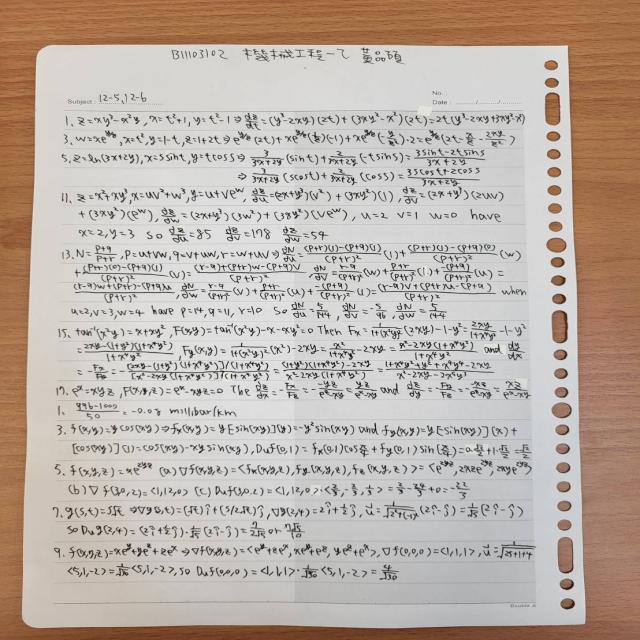 B11103102 機械工程一乙 黃品碩
Subject: 12-5, 12-6
No.
Date: / /
1. z=xy³-x²y, x=t²+1, y=t²-1 ⇒ dz/dt=(y³-2xy)(2t)+(3xy²-x²)(2t)=2t(y³-2xy+3xy²-x²)
3. w=xe^(y/z), x=t², y=1-t, z=1+2t ⇒ e^(y/z)(2t)+xe^(y/z)(1/z)(-1)+xe^(y/z)(-y/z²)·2=e^(y/z)(2t-x/z-2xy/z²)
5. z=ln(3x+2y), x=s sint, y=t coss ⇒ 3/(3x+2y)(sint)+2/(3x+2y)(-tsins)=(3sint-2tsins)/(3x+2y)
⇒ 3/(3x+2y)(scost)+2/(3x+2y)(coss)=(3scost+2coss)/(3x+2y)
11. z=x²+xy³, x=uv²+w³, y=u+ve^w, dz/du=(2x+y³)(v²)+(3xy²)(1), dz/dv=(2x+y³)(2uv)
+(3xy²)(e^w), dz/dw=(2x+y³)(3w²)+(3xy²)(ve^w), u=2 v=1 w=0 have
x=2, y=3 so dz/du=85 dz/dv=178 dz/dw=54
13. N=(p+q)/(p+r), p=u+vw, q=v+uw, r=w+uv ⇒ dN/du=((p+r)(1)-(p+q)(1))/(p+r)²(1)+((p+r)(1)-(p+q)(0))/(p+r)²(w)
+((p+r)(0)-(p+q)(1))/(p+r)²(v)=((r-q)+(p+r)w-(p+q)v)/(p+r)², dN/dv=(r-q)/(p+r)²(w)+(p+r)/(p+r)²(1)+(-(p+q))/(p+r)²(u)=
((r-q)w+(p+r)-(p+q)u)/(p+r)², dN/dw=(r-q)/(p+r)²(v)+(p+r)/(p+r)²(u)+(-(p+q))/(p+r)²(1)=((r-q)v+(p+r)u-(p+q))/(p+r)² when
u=2, v=3, w=4 have p=14, q=11, r=10 so dN/du=5/144 dN/dv=-5/96 dN/dw=5/144
15. tan⁻¹(x²y)=x+xy², F(x,y)=tan⁻¹(x²y)-x-xy²=0 Then Fx=1/(1+(x²y)²)(2xy)-1-y²=2xy/(1+x⁴y²)-1-y²
=(2xy-(1+y²)(1+x⁴y²))/(1+x⁴y²), Fy(x,y)=1/(1+(x²y)²)(x²)-2xy=x²/(1+x⁴y²)-2xy=(x²-2xy(1+x⁴y²))/(1+x⁴y²) and dy/dx
17. e^z=xyz, F(x,y,z)=e^z-xyz=0
1. (996-1000)/50=-0.08 millibar/km
3. f(x,y)=y cos(xy) ⇒ fx(x,y)=y[-sin(xy)](y)=-y²sin(xy) and fy(x,y)=y[-sin(xy)](x)
+[cos(xy)](1)=cos(xy)-xy sin(xy),
5. f(x,y,z)=xe^(2yz) (a) ∇f(x,y,z)=<fx(x,y,z), fy(x,y,z), fz(x,y,z)>=<e^(2yz), 2xze^(2yz), 2xye^(2yz)>
(b) ∇f(3,0,2)=<1,12,0> (c) Duf(3,0,2)=<1,12,0>·<2/3,-2/3,1/3>=2/3-24/3+0=-22/3
so Dug(2,4)=(2î+½ĵ)·1/√5(2î-ĵ)=7/2√5 or 7√5/10
9. f(x,y,z)=xe^y+ye^z+ze^x ⇒ ∇f(x,y,z)=<e^y+ze^x, xe^y+e^z, ye^z+e^x>, ∇f(0,0,0)=<1,1,1>, u=1/√(25+1+4)
<5,1,-2>=1/√30<5,1,-2>, so Duf(0,0,0)=<1,1,1>·1/√30<5,1,-2>=4/√30
Double A